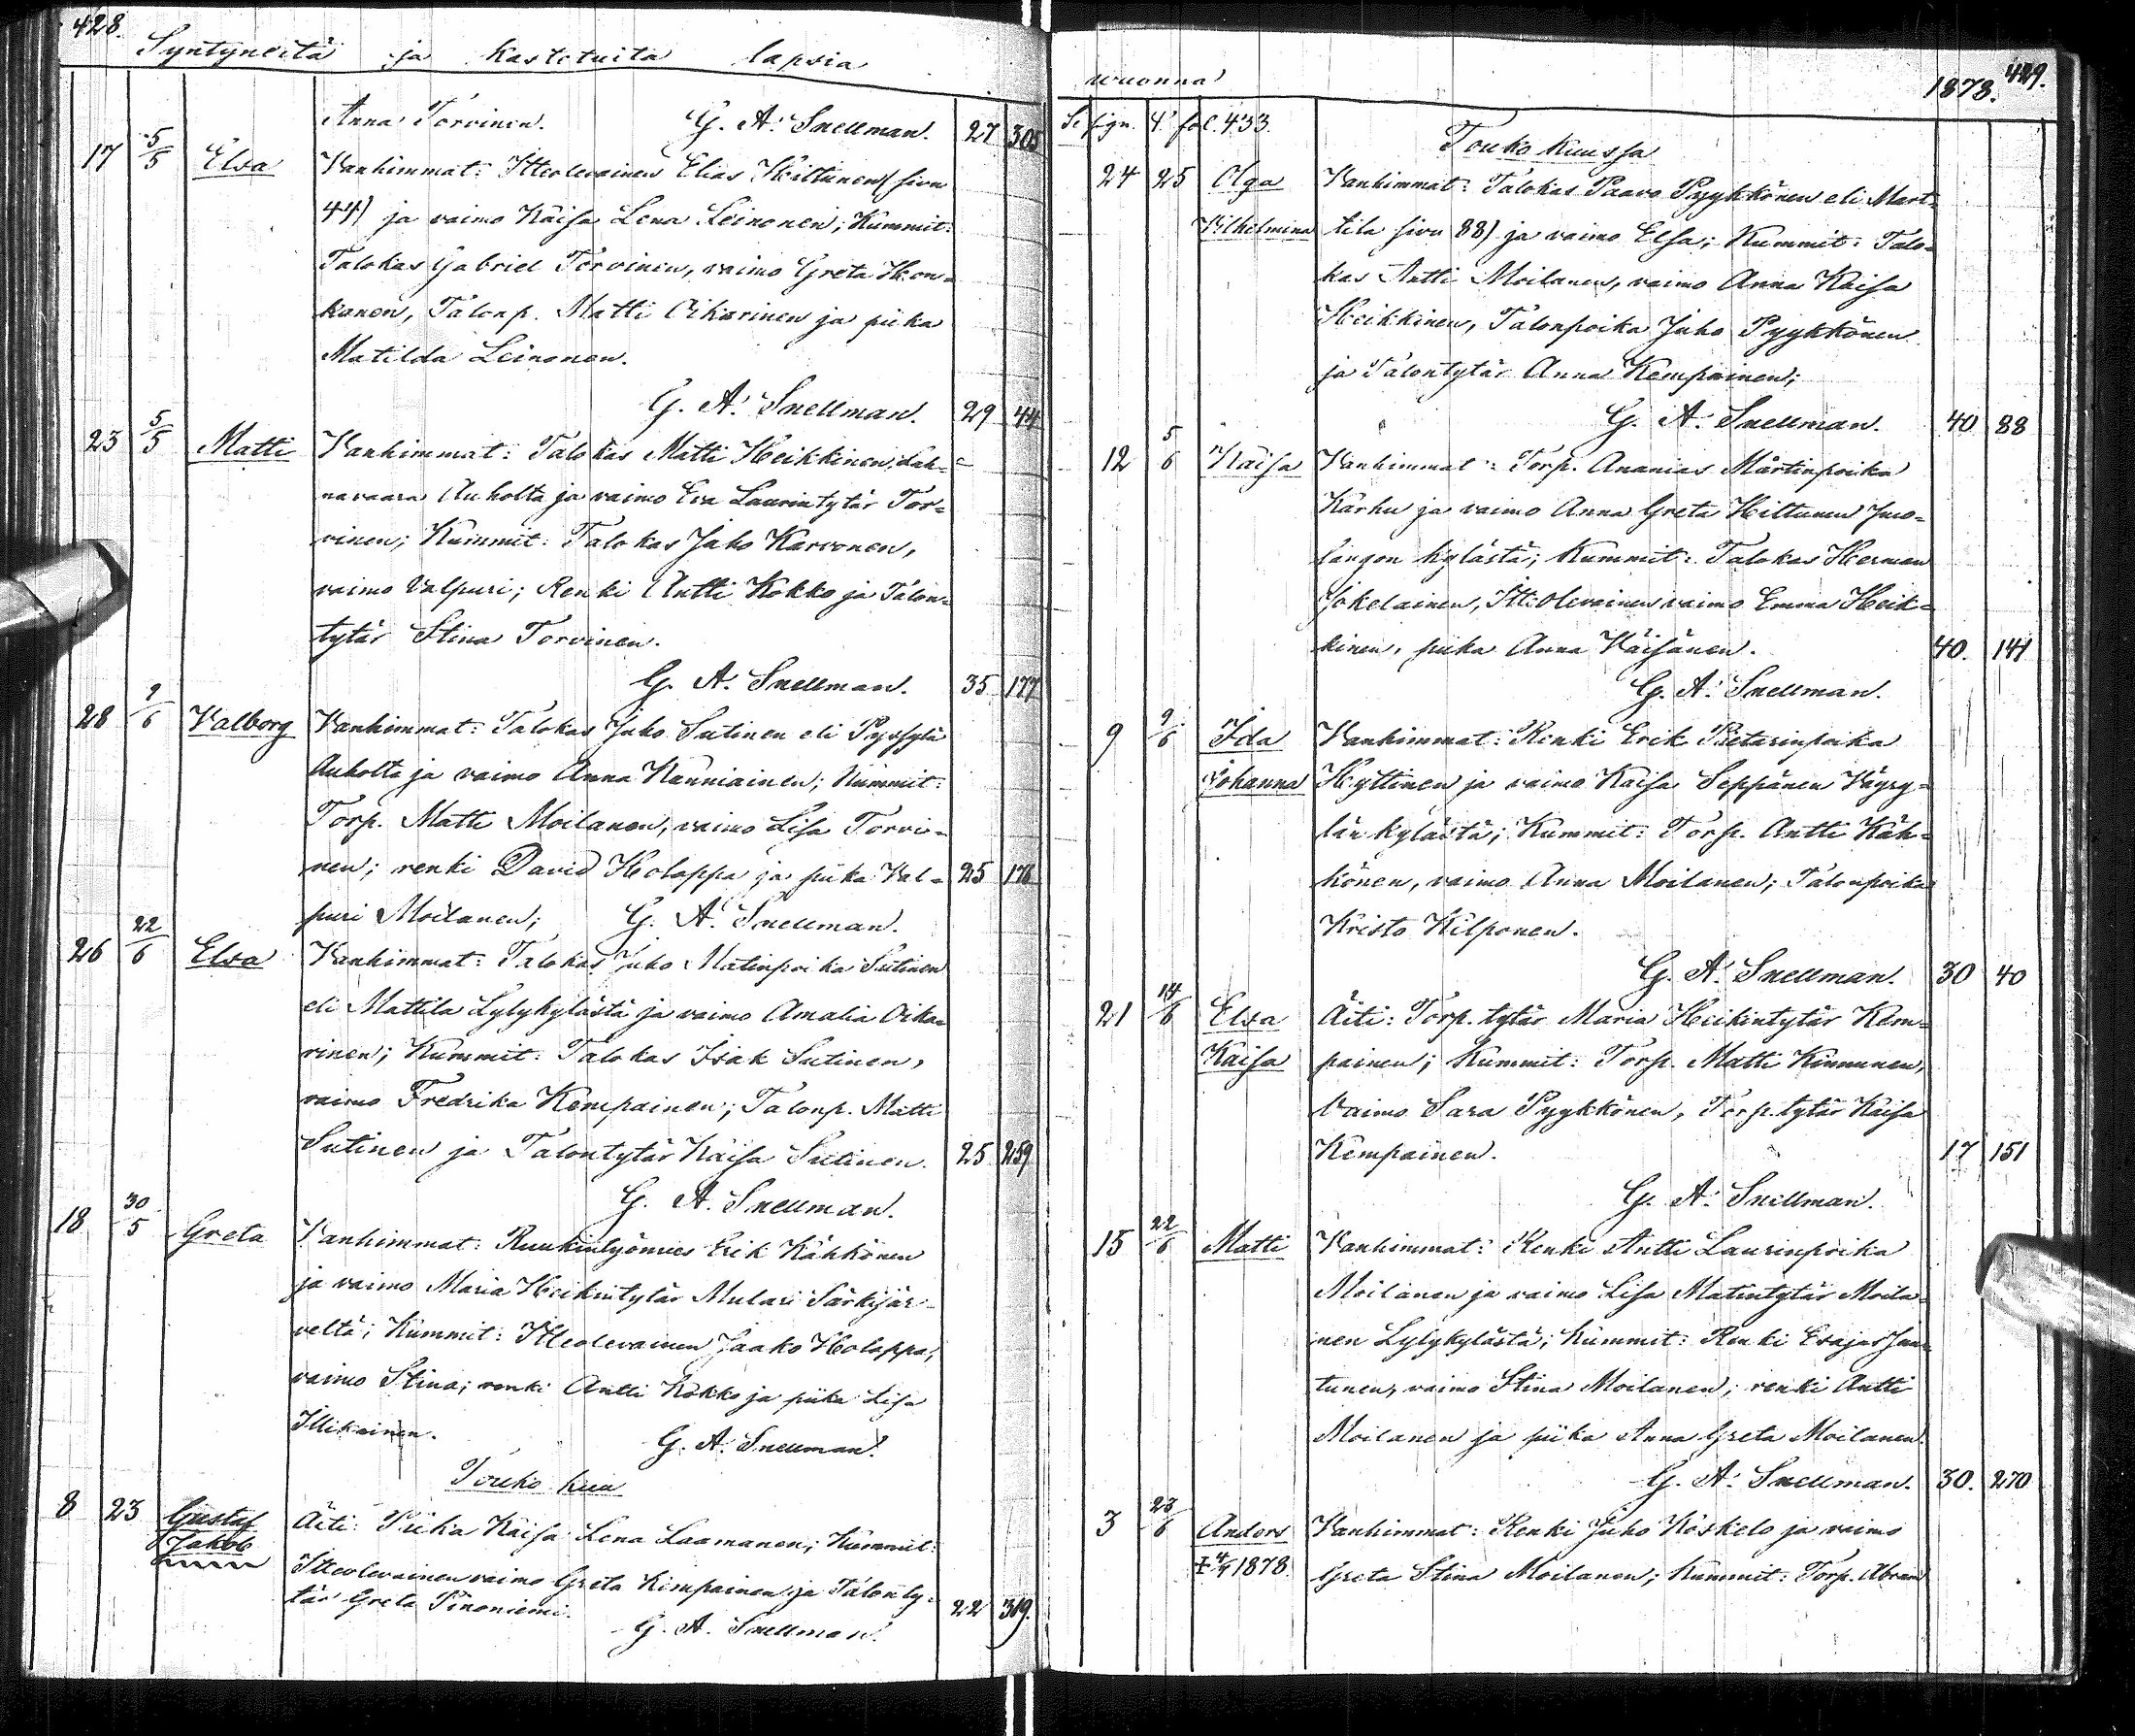 428.
Syntyneitä ja kastetuita lapsia
Anna Torvinen. G. A. Snellman. 27 305
17 5/5 Elsa Vanhimmat: Itteolevainen Elias Hiltunen (sivu
44) ja vaimo Kaisa Lena Leinonen; Kummit:
Talokas Gabriel Torvinen, vaimo Greta Hon-
kanen, Talonp. Matti Oikarinen ja piika
Matilda Leinonen.
G. A. Snellman. 29 44
23 5/5 Matti Vanhimmat: Talokas Matti Heikkinen, Lah-
navaara Auholta ja vaimo Eva Laurintytär Tor-
vinen; Kummit: Talokas Juho Karvonen,
vaimo Valpuri; Renki Antti Kokko ja Talon-
tytär Stina Torvinen.
G. A. Snellman. 35 177
28 9/6 Valborg Vanhimmat: Talokas Juho Sutinen eli
Auholta ja vaimo Anna Nänniainen; Kummit:
Torp. Matti Moilanen, vaimo Lisa Torvi-
nen; renki David Holappa ja piika Val- 25 176
puri Moilanen; G. A. Snellman.
26 22/6 Elsa Vanhimmat: Talokas Juho Matinpoika Sutinen
eli Mattila Lylykylästä ja vaimo Amalia Oika-
rinen; Kummit: Talokas Isak Sutinen,
vaimo Fredrika Kempainen; Talonp. Matti
Sutinen ja Talontytär Kaisa Sutinen. 25 259
G. A. Snellman.
18 30/5 Greta Vanhimmat: Ruukintyömies Erik Kähkönen
ja vaimo Maria Heikintytär Mulari Särkijär-
veltä; Kummit: Itteolevainen Jaako Holappa,
vaimo Stina; renki Antti Kokko ja piika Lisa
Illikainen. G. A. Snellman.
Touko kuu
8 23 Gustaf Äiti: Piika Kaisa Lena Laamanen; Kummit:
Jakob Itteolevainen vaimo Greta Kempainen ja Talonty-
tär Greta Pinoniemi. 22 319.
G. A. Snellman.
429.
wuonna 1878.
Se sign. 4. fol. 433. Touko kuussa
24 25 Olga Vanhimmat: Talokas Paavo Pyykkönen eli Mart-
Vilhelmina tila sivu 88) ja vaimo Elsa; Kummit: Talo-
kas Antti Moilanen, vaimo Anna Kaisa
Heikkinen, Talonpoika Juho Pyykkönen
ja Talontytär Anna Kempainen;
G. A. Snellman. 40 88
12 5/6 Kaisa Vanhimmat: Torp. Ananias Mårtinpoika
Karhu ja vaimo Anna Greta Hiltunen Juo-
langon kylästä; Kummit: Talokas Herman
Jokelainen, Itteolevainen vaimo Emma Heik-
kinen, piika Anna Väisänen. 40. 141
G. A. Snellman.
9 9/6 Ida Vanhimmat: Renki Erik Pietarinpoika
Johanna Hyttinen ja vaimo Kaisa Seppänen Väyry-
län kylästä; Kummit: Torp. Antti Käh-
könen, vaimo Anna Moilanen; Talonpoika
Kristo Kilponen.
G. A. Snellman. 30 40
21 14/6 Elsa Äiti: Torp. tytär Maria Heikintytär Kem-
Kaisa painen; Kummit: Torp. Matti Kinnunen,
Vaimo Sara Pyykkönen, Torp. tytär Kaisa
Kempainen. 17 151
G. A. Snellman.
15 22/6 Matti Vanhimmat: Renki Antti Laurinpoika
Moilanen ja vaimo Lisa Matintytär Moila-
nen Lylykylästä; Kummit: Renki Esajas Jun-
tunen, vaimo Stina Moilanen; renki Antti
Moilanen ja piika Anna Greta Moilanen.
G. A. Snellman. 30. 270
3 23/6 Anders Vanhimmat: Renki Juho Koskelo ja vaimo
1878. Greta Stina Moilanen; Kummit: Torp. Abram